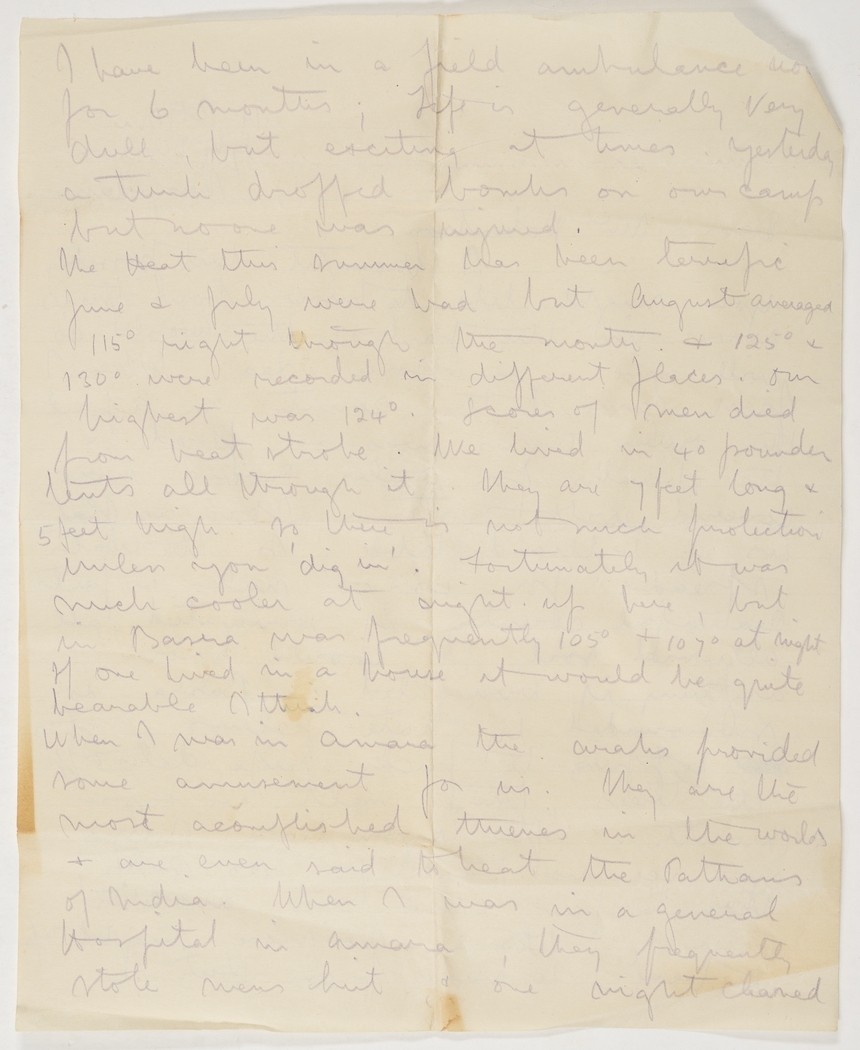 I have been in a field ambulance now
for 6 months ; Life is generally very
dull , but exciting at times . Yesterday
a turk dropped bombs on our camp
but no one was injured .
The Heat this summer has been terrific
June & July were bad but August averaged
115° right through the month . & 125° &
130° were recorded in different places . Our
highest was 124° . Scores of men died
from heat stroke . We lived in 40 pounder
tents all through it . They are 7 feet long &
5 feet high so there is not much protection
unless you 'dig in' . Fortunately it was
much cooler at night up here , but
in Basra was frequently 105° + 107° at night
If one lived in a house it would be quite
bearable I think .
When I was in Amara the arabs provided
some amusement for us . They are the
most acomplished thieves in the world
+ are even said to beat the Pathans
of India . When I was in a general
Hospital in Amara , they frequently
stole mens kit & one night cleared